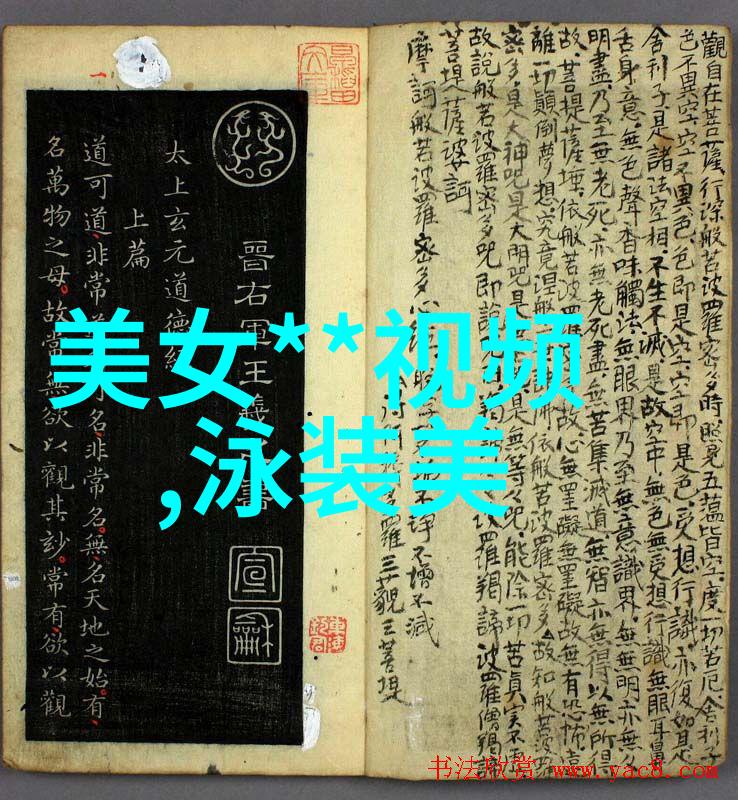 美女**视频
,泳装美
觀自在菩薩行深般若波羅密多時照見五蘊皆空度一切苦厄舍利子
色不異空空不異色色即是空空即是色受想行識亦復如是
舍利子是諸法空相不生不滅是故空中無色無受想行識無眼耳鼻
舌身意無色聲香味觸法無眼界乃至無意識界無無明亦無
明盡乃至無老死亦無老死盡無苦集滅道無智亦無得以無所得
故菩提薩埵依般若波羅密多故心無罣礙無罣礙故無有恐怖遠
離一切顛倒夢想究竟涅槃佛依般若波羅密多故知般若波羅
密多是大神咒是大明咒是無等々咒能除一切苦真實不
故說般若波羅密多咒即說波羅揭諦波羅僧揭諦
菩提薩婆訶不增不減
摩訶般若波羅密多心羅三藐三菩提
晉右軍王羲書
太上玄元道德經
上篇
道可道非常可名非常名無名天地之始有
名萬物之母故常無欲以觀其妙常有欲以觀
宣
龢
书法欣赏 www.yac8.com